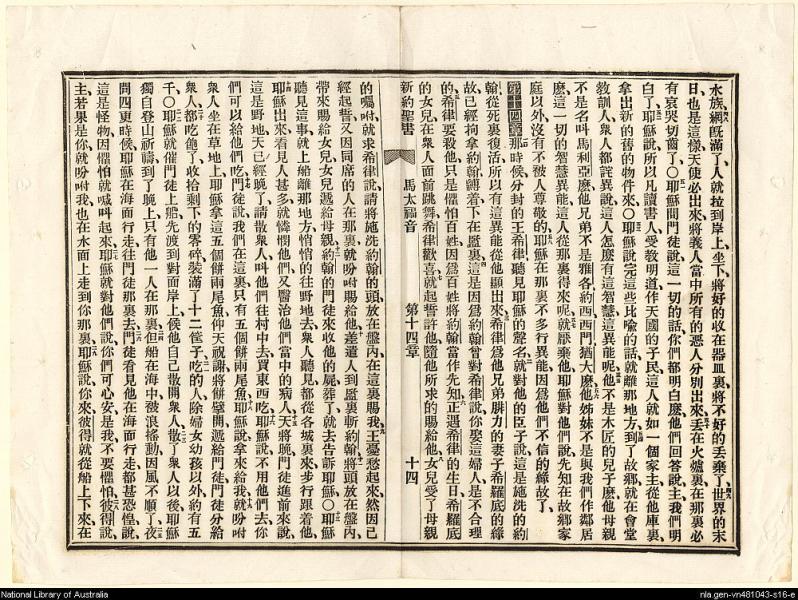 水族網旣滿了、人就拉到岸上、坐下將好的收在器皿裏、將不好的丟棄了世界的末
日、也是這樣天使必出來、將義人當中所有的惡人分別出來、丟在火爐裏、在那裏必
有哀哭切齒了○耶穌問門徒說、這一切的話、你們都明白麽、他們回答說、主、我們明
白了耶穌說、所以凡讀書人受教明道、作天國的子民、這人就如一個家主、從他庫裏
拿出新的舊的物件來○耶穌說完這些比喻的話、就離那地方、到了故鄉、就在會堂
敎訓人、衆人都詫異說、這人怎麽有這智慧這異能呢、他不是木匠的兒子麽、他母親
不是名叫馬利亞麽、他兄弟不是雅各約西西門猶大麽、他姊妹不是與我們作鄰居
麽、這一切的智慧異能、這人從那裏得來呢、就厭棄他耶穌對他們說、先知在故鄉家
庭以外、沒有不被人尊敬的耶穌在那裏不多行異能、因爲他們不信的緣故了、
第十四章 那時候分封的王希律、聽見耶穌的聲名就對他的臣子說、這是施洗的約
翰從死裏復活、所以有這異能從他顯出來希律爲他兄弟腓力的妻子希羅底的緣
故、已經拘拏約翰鏁着下在監裏、這是因爲約翰曾對希律說、你娶這婦人、是不合理
的希律要殺他、只是懼怕百姓、因爲百姓將約翰當作先知正遇希律的生日、希羅底
的女兒在衆人面前跳舞、希律歡喜就起誓許他、隨他所求的賜給他女兒受了母親
新約聖書
馬太福音
第十四章
十四
的囑咐、就求希律說、請將施洗約翰的頭、放在盤內、在這裏賜我王憂愁起來、然因已
經起誓、又因同席的人在那裏、就吩咐賜給他差遣人到監裏斬約翰將頭放在盤內、
帶來賜給女兒、女兒遞給母親約翰的門徒來、收他的屍葬了、就去告訴耶穌○耶穌
聽見這事、就上船離那地方、悄悄的往野地去、衆人聽見、都從各城裏來、步行跟着他、
耶穌出來看見人甚多、就憐憫他們、又醫治他們當中的病人天將晚、門徒進前來說、
這是野地、天已經晚了、請散衆人、叫他們往村中去、買東西吃耶穌說、不用他們去、你
們可以給他們吃門徒說、我們在這裏只有五個餅兩尾魚耶穌說、拿來給我就吩咐
衆人坐在草地上、耶穌拿這五個餅兩尾魚、仰天祝謝、將餅擘開遞給門徒、門徒分給
衆人都吃飽了、收拾剩下的零碎、裝滿了十二筐子吃的人、除婦女幼孩以外、約有五
千○耶穌就催門徒上船、先渡到對面岸上候他自己散開衆人散了衆人以後、耶穌
獨自登山祈禱、到了晚上、只有他一人在那裏但船在海中、被浪搖動、因風不順了、夜
間四更時候、耶穌在海面行走、往門徒那裏去門徒看見他在海面行走、都甚恐慌、說
這是怪物、因懼怕就喊叫起來耶穌就對他們說、你們可心安、是我、不要懼怕彼得說、
主、若果是你、就吩咐我也在水面上走到你那裏耶穌說、你來彼得就從船上下來、在
National Library of Australia
nla.gen-vn481043-s16-e